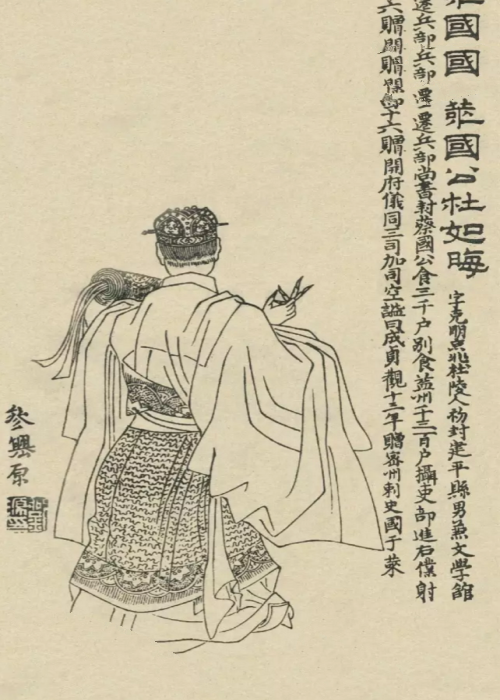 國國 萊國公杜如晦 字克明京兆杜陵人初封建平縣男兼文學館
遷兵部兵部遷遷兵部尚書封蔡國公食三千户別食益州千三百户攝吏部進右僕射
六贈開贈十六贈開府儀同三司加司空謚曰成貞觀十三年贈密州刺史國于萊
叅興原